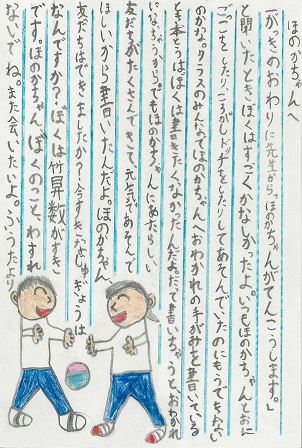 ほのかちゃんへ
一がっきのおわりに先生から、「ほのかちゃんがてんこうします。」
と聞いたとき、ぼくはすごくかなしかったよ。いつもほのかちゃんとおに
ごっこをしたり、ころがしドッチをしたりしてあそんでいたのにもうできない
のかな。クラスのみんなでほのかちゃんへおわかれの手がみを書いている
とき本とうはぼくは書きたくなかったんだよ。だって書いちゃうと、おわかれ
になっちゃうから。でもほのかちゃんにあたらしい
友だちがたくさんできて、元気であそんで
ほしいから書いたんだよ。ほのかちゃん
友だちはできましたか?今すきなじゅぎょうは
なんですか?ぼくは算数がすき
です。ほのかちゃん、ぼくのこと、わすれ
ないでね。また会いたいよ。ふうたより